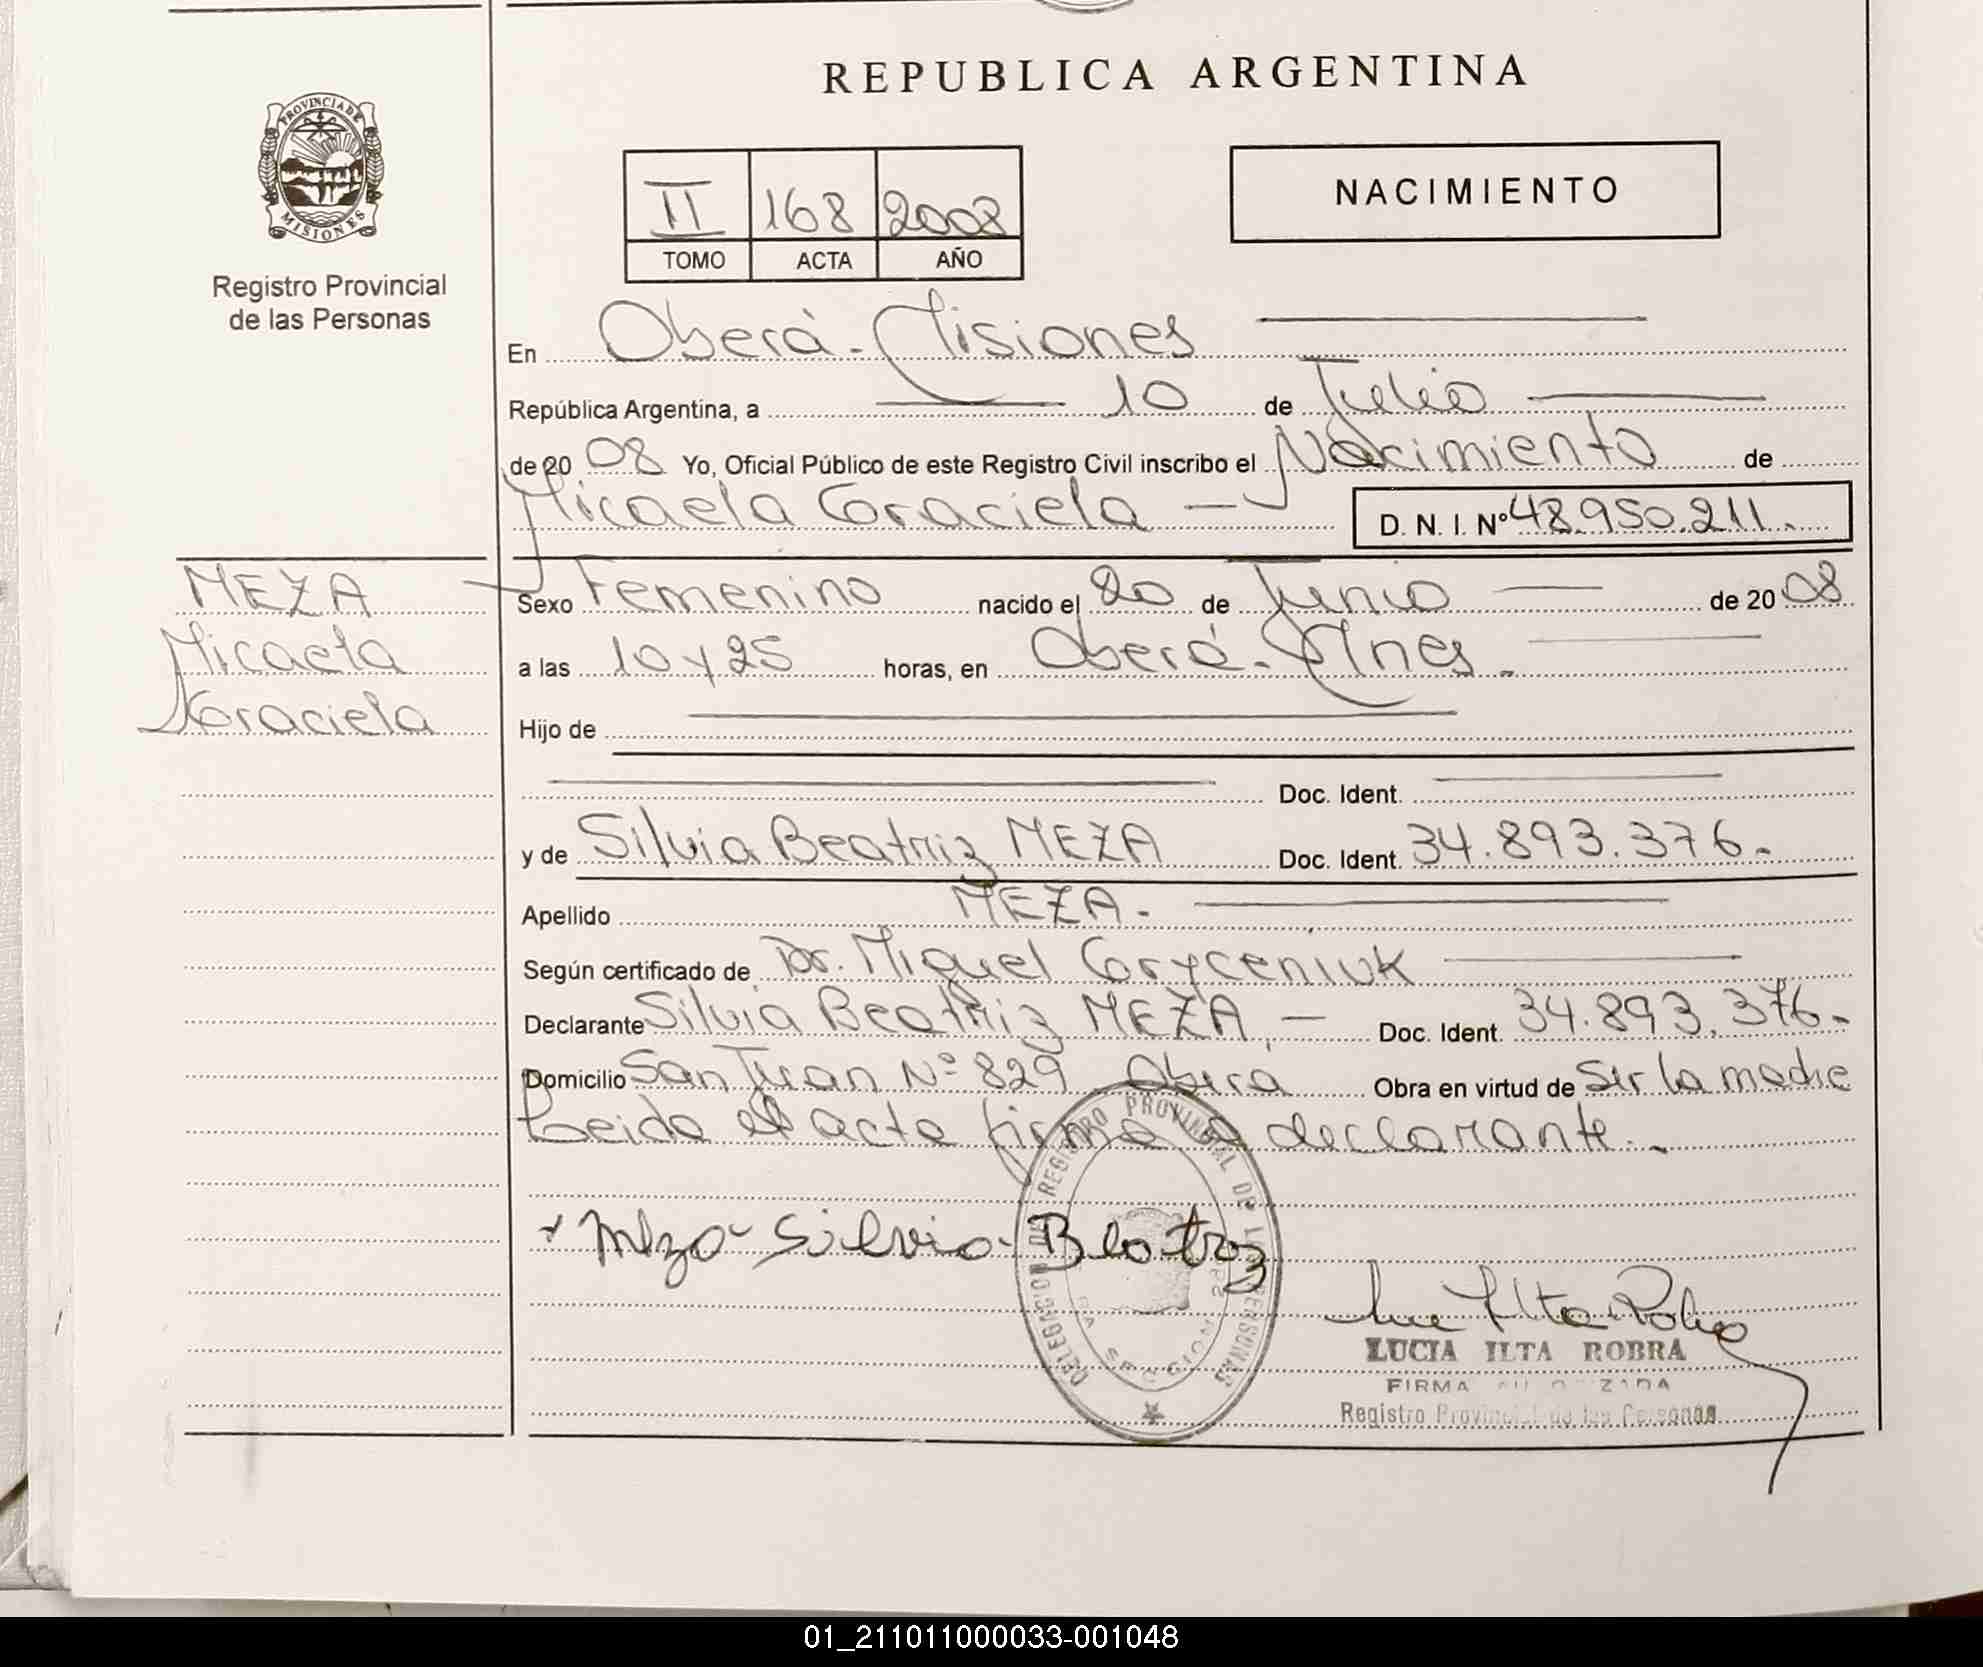 REPUBLICA ARGENTINA
PROVINCIA DE
MISIONES
Registro Provincial
de las Personas
II 168 2008
TOMO ACTA AÑO
NACIMIENTO
En Oberá - Misiones
República Argentina, a 10 de Julio
de 2008 Yo, Oficial Público de este Registro Civil inscribo el Nacimiento de
Micaela Graciela — D. N. I. Nº 48.950.211.
MEZA
Micaela
Graciela
Sexo Femenino nacido el 20 de Junio de 2008
a las 10 y 25 horas, en Oberá - Mnes.
Hijo de
Doc. Ident.
y de Silvia Beatriz MEZA Doc. Ident. 34.893.376.
Apellido MEZA.
Según certificado de Dr. Miguel Goryceniuk
Declarante Silvia Beatriz MEZA, — Doc. Ident. 34.893.376.
Domicilio San Juan Nº 829 Oberá Obra en virtud de Ser la madre
Leida el acta firma la declarante.
Meza Silvia Beatriz
DELEGACION REGISTRO PROVINCIAL DE LAS PERSONAS
LUCIA ILTA ROBRA
FIRMA AUTORIZADA
Registro Provincial de las Personas
01_211011000033-001048